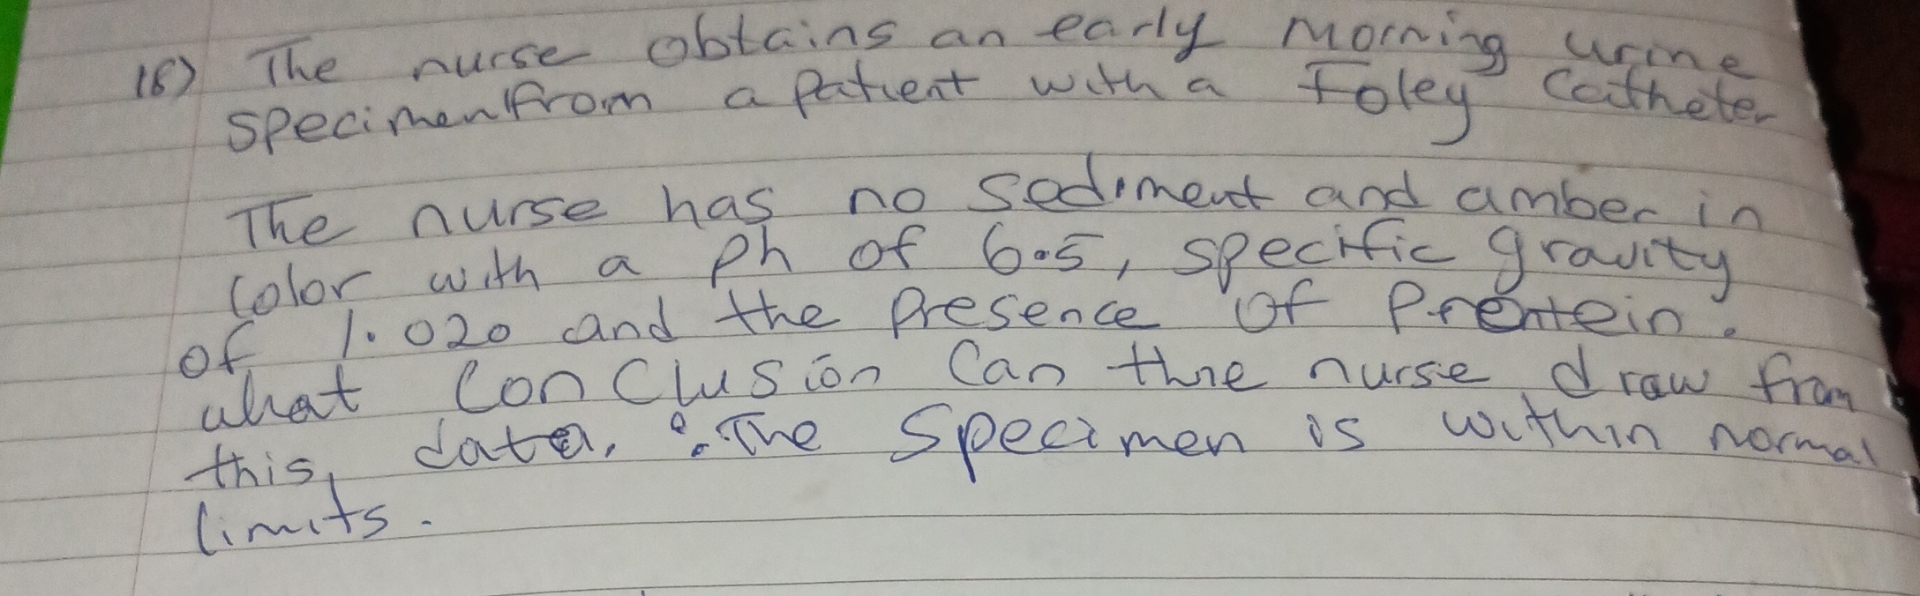 18) The nurse obtains an early morning urine
specimen from a patient with a Foley Catheter
The nurse has no sediment and amber in
color with a ph of 6.5, specific gravity
of 1.020 and the presence of Prentein.
what Conclusion Can thre nurse draw from
this, data. : The Specimen is within normal
limits.